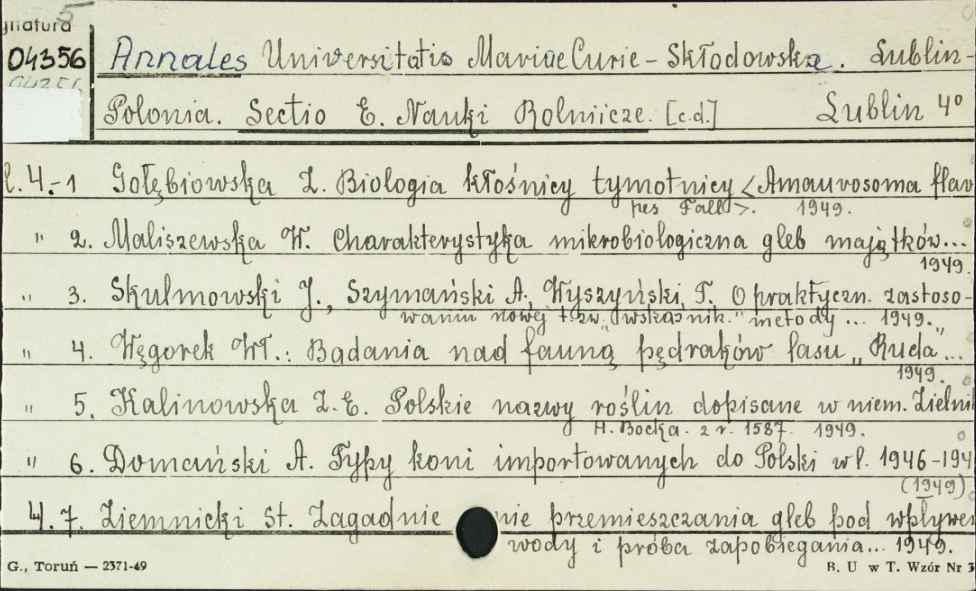 5
gnatura
04356 Annales Universitatis Mariae Curie - Skłodowska. Lublin -
04356
Polonia. Sectio E. Nauki Rolnicze. [c.d.] Lublin 4°
t. 4.-1 Gołębiowska Z. Biologia kłośnicy tymotnicy <Amaurosoma flav
pes Fall>. 1949.
" 2. Maliszewska W. Charakterystyka mikrobiologiczna gleb majątków...
1949.
" 3. Skulmowski J., Szymański A., Wyszyński T. O praktyczn. zastoso-
waniu nowej t.zw. "wskaźnik." metody ... 1949.
" 4. Węgorek Wł.: Badania nad fauną pędraków lasu „Ruda"...
1949.
" 5. Kalinowska Z. E. Polskie nazwy roślin dopisane w niem. Zielni
H. Bocka. z r. 1587. 1949.
" 6. Domański A. Typy koni importowanych do Polski w l. 1946-194
(1949)
4. 7. Ziemnicki St. Zagadnie nie przemieszczania gleb pod wpływe
wody i próba zapobiegania... 1949.
G., Toruń — 2371-49 B. U w T. Wzór Nr 3